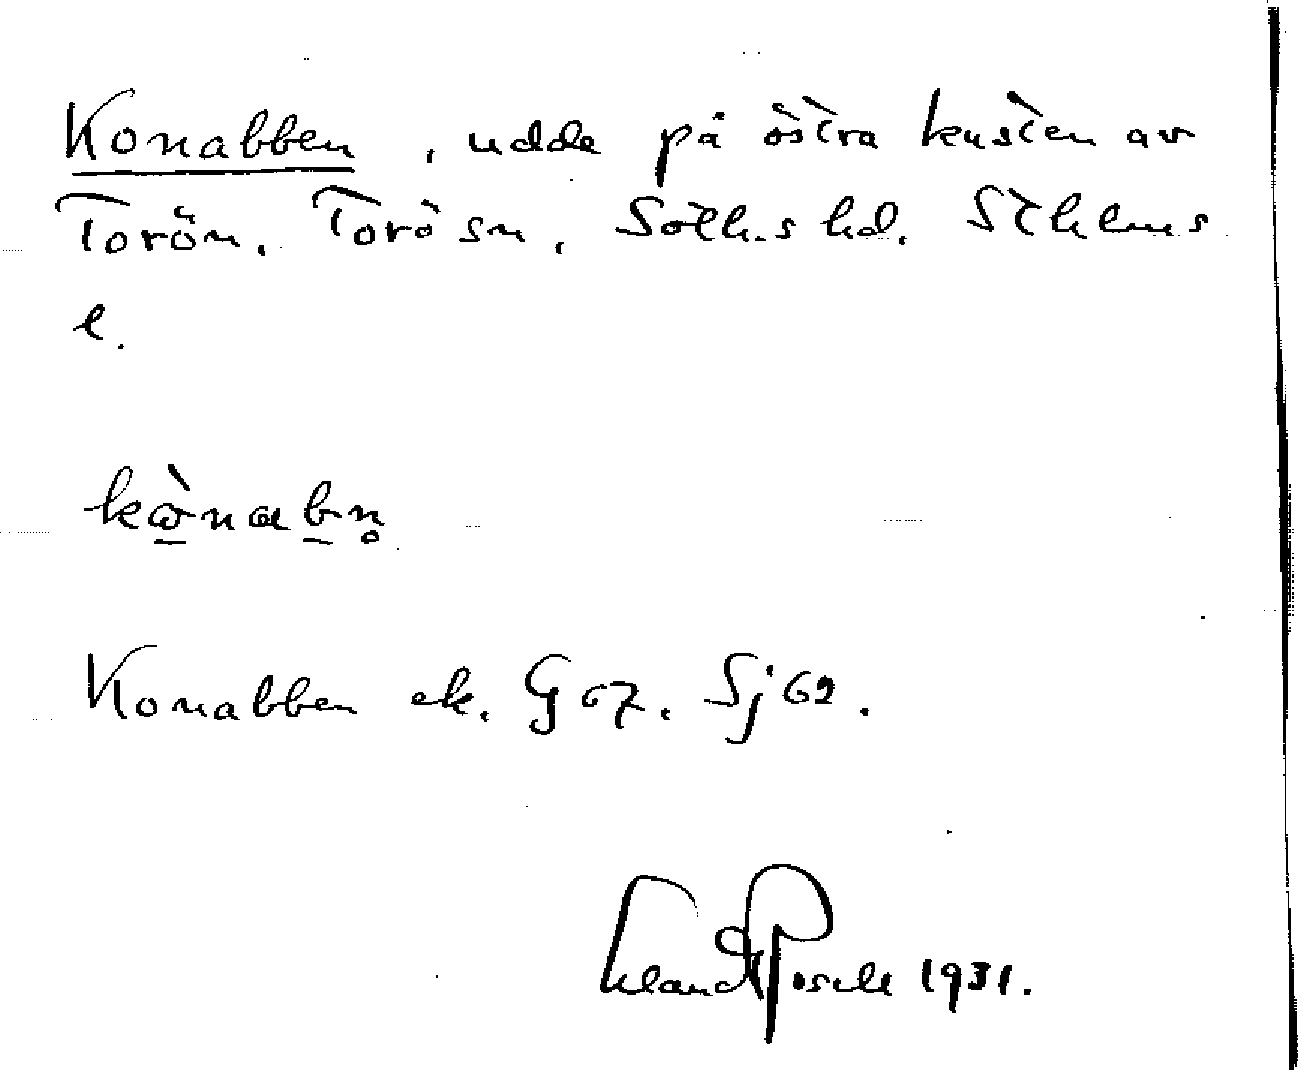 Konabben, udde på östra kusten av
Torön, Torö sn, Soth.s hd. Sthlms
l.
kὼnabn̥
Konabben ek. G 67. Sj 62.
Erland Rosell 1931.